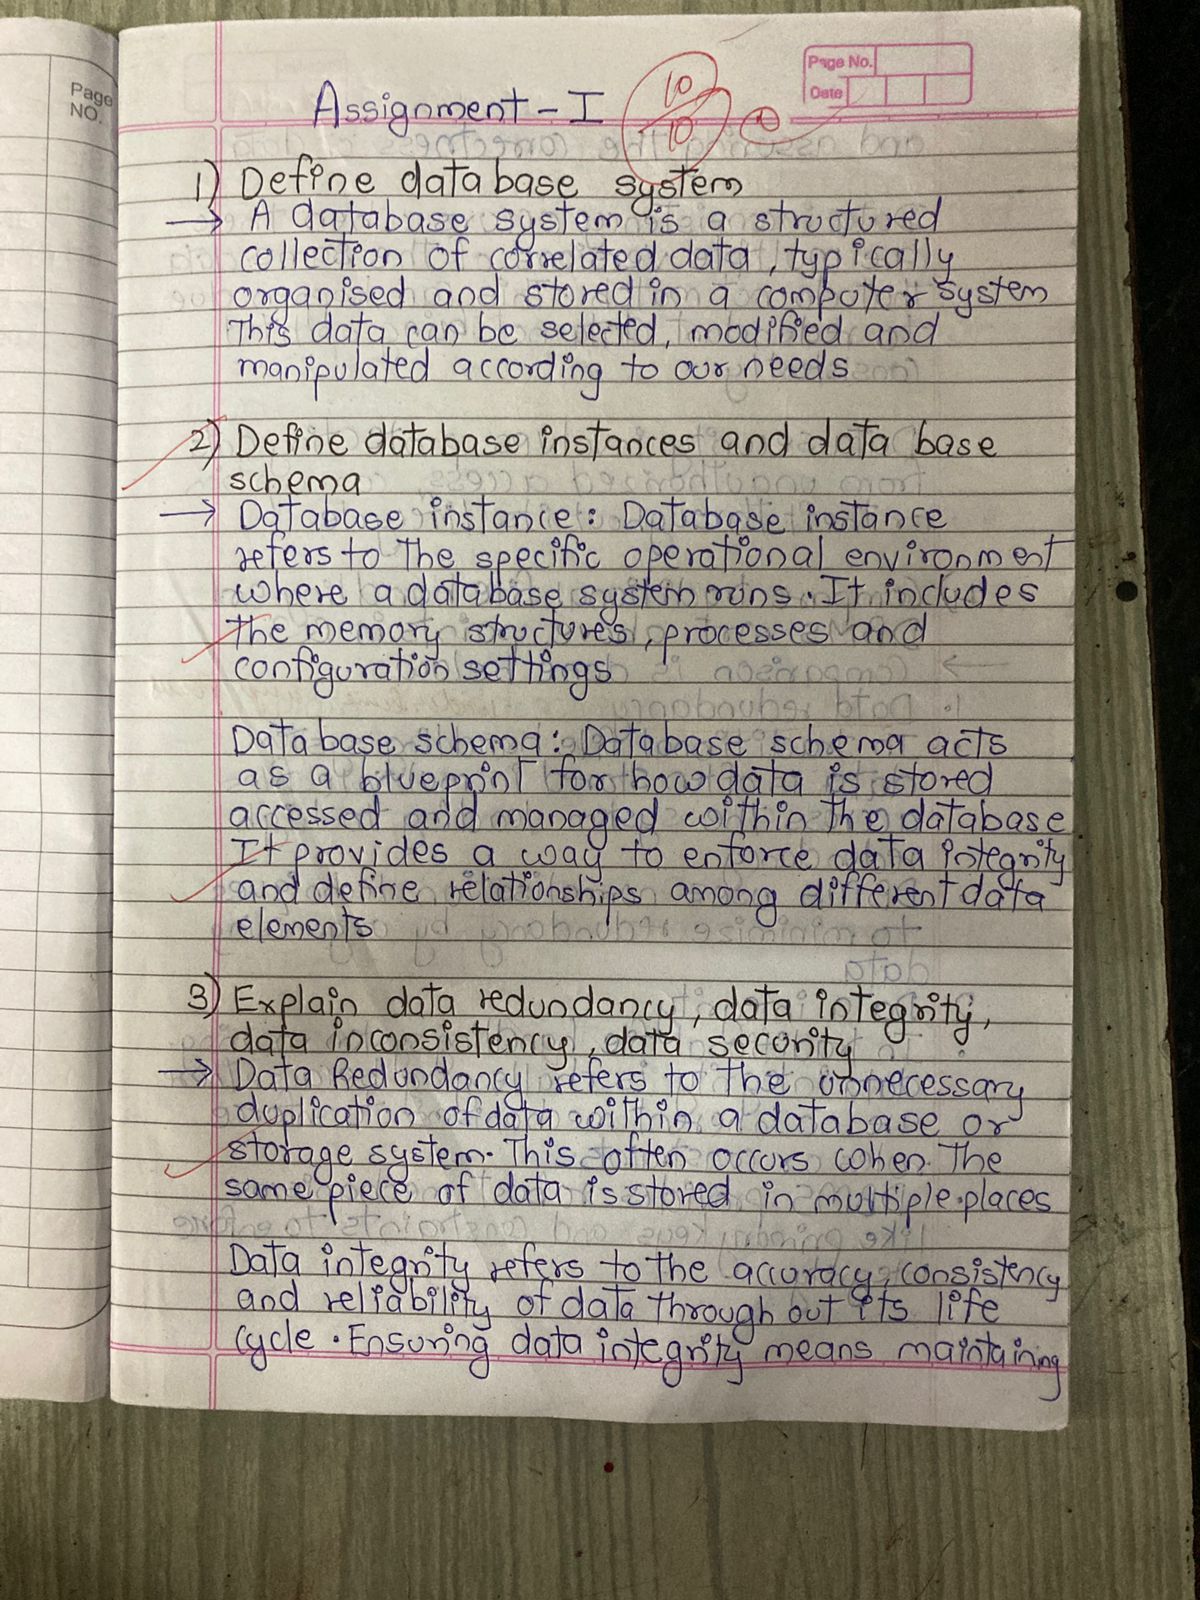 Page
NO.
Page No.
Date
Assignment - I
10
10
1) Define database system
→ A database system is a structured
collection of correlated data, typically
organised and stored in a computer system
This data can be selected, modified and
manipulated according to our needs
2) Define database instances and data base
schema
→ Database instance: Database instance
refers to the specific operational environment
where a database system runs. It includes
the memory structures, processes and
configuration settings
Database schema: Database schema acts
as a blueprint for how data is stored
accessed and managed within the database
It provides a way to enforce data integrity
and define relationships among different data
elements
3) Explain data redundancy, data integrity,
data inconsistency, data security
→ Data Redundancy refers to the unnecessary
duplication of data within a database or
storage system. This often occurs when the
same piece of data is stored in multiple places
Data integrity refers to the accuracy, consistency
and reliability of data through out its life
cycle. Ensuring data integrity means maintaining